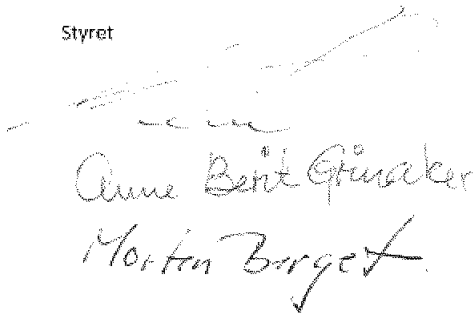 Styret
Anne Berit Grinaker
Morten Berget